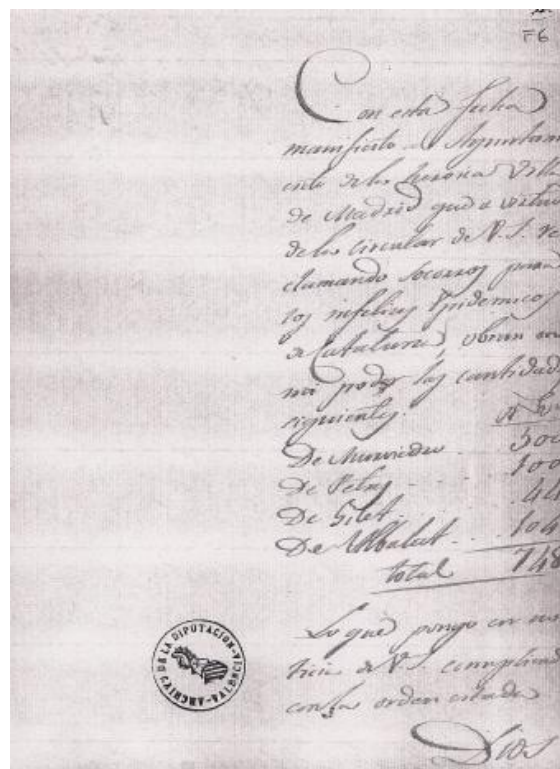 F6
Con esta fecha
manifiesto al Ayuntam
ento de la heroica Villa
de Madrid que a virtud
de la circular de V.S. re
clamando socorros para
los infelices Epidemicos
de Cataluna, obran en
mi poder las cantidad
siguientes.
De Murviedro 500
De Petres 100
De Gilet 44
De Albalat 104
total 748
Lo que pongo en no
ticia de V.S. cumpliend
con la orden citada
Dios
ARCHIVO DE LA DIPUTACION - VALENCIA